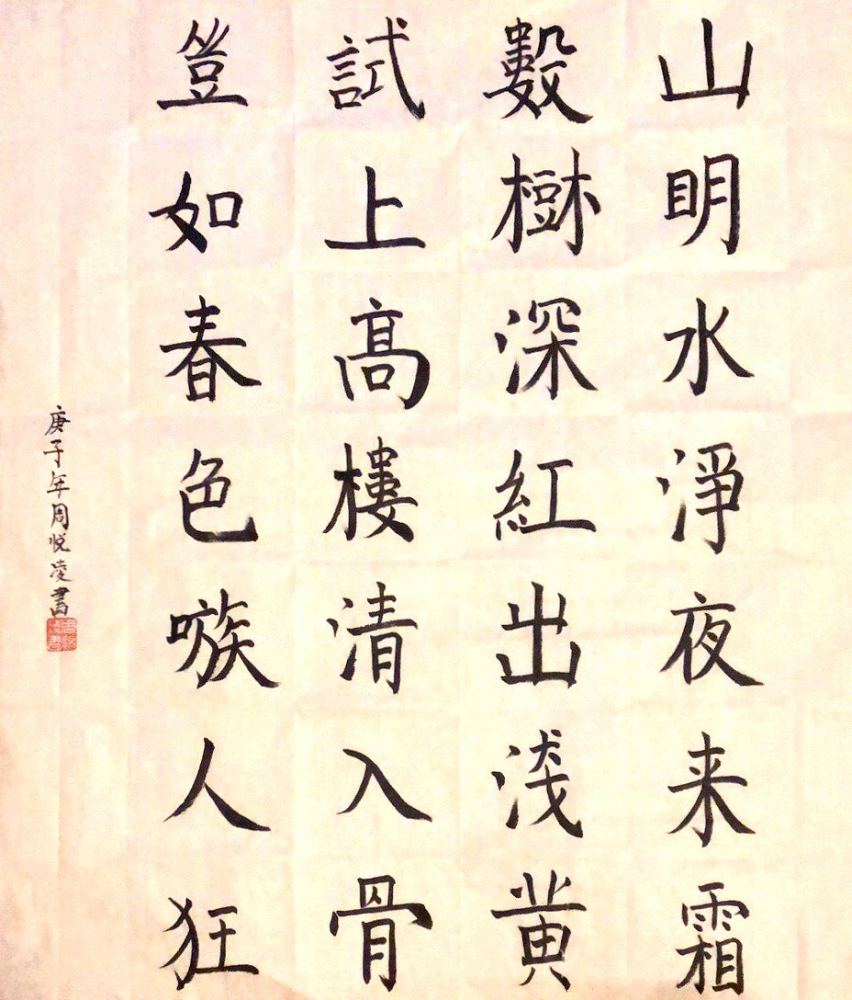 山明水淨夜来霜
數樹深紅出淺黄
試上高樓清入骨
豈如春色嗾人狂
庚子年周悦凌書